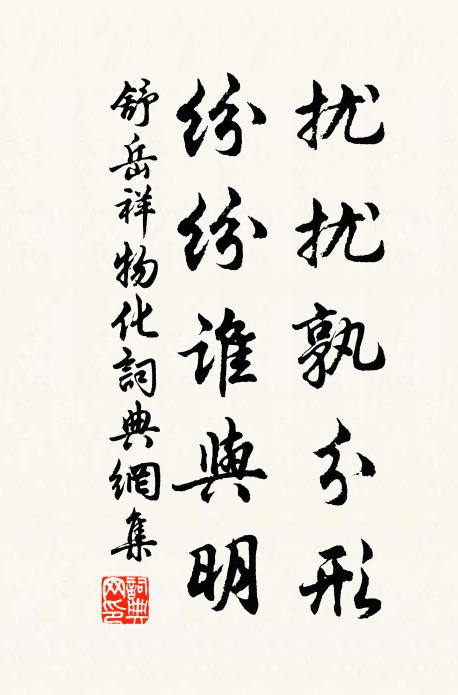 扰扰孰分形
纷纷谁與明
舒岳祥物化詞典網集
詞典网印